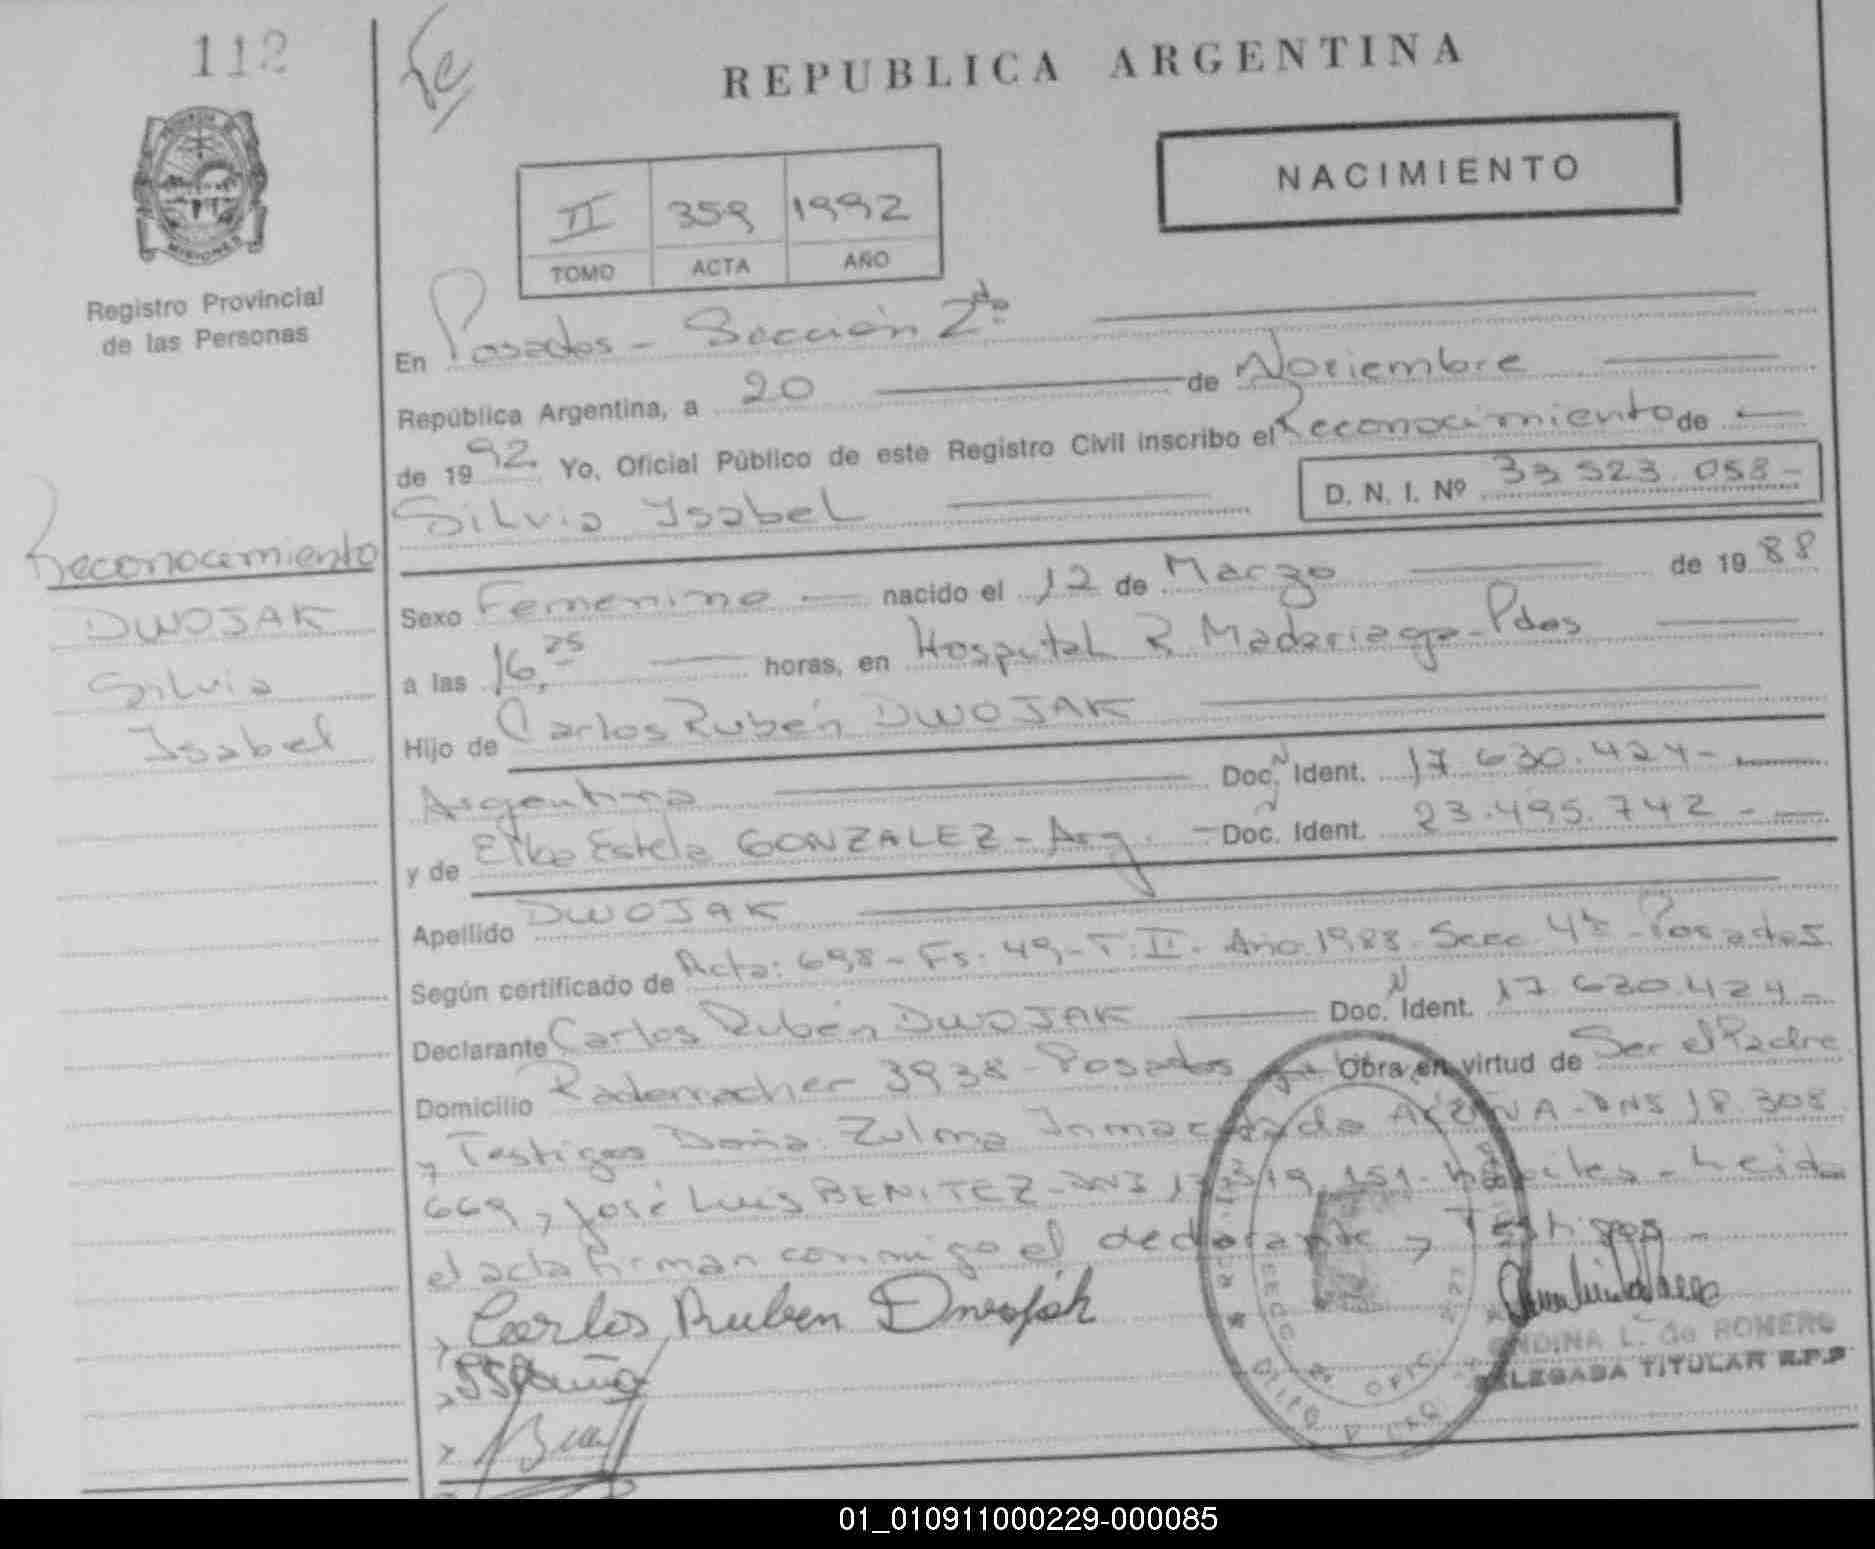 112
REPUBLICA ARGENTINA
NACIMIENTO
II 359 1992
TOMO ACTA AÑO
MISIONES
Registro Provincial
de las Personas
En Posadas - Sección 2da
República Argentina, a 20 de Noviembre
de 1992. Yo, Oficial Público de este Registro Civil inscribo el Reconocimiento de
Silvia Isabel D. N. I. Nº 33 523. 058-
Reconocimiento
DWOJAK
Silvia
Isabel
Sexo Femenino nacido el 12 de Marzo de 1988
a las 16,25 horas, en Hospital R. Madariaga - Pdas
Hijo de Carlos Rubén DWOJAK
Argentina Doc. N Ident. 17.630.424-
y de Elba Estela GONZALEZ - Arg. - Doc. N Ident. 23.495.742 -
Apellido DWOJAK
Según certificado de Acta: 698 - Fs. 49 - T: II - Año 1988. Secc 4ª - Posadas.
Declarante Carlos Rubén DWOJAK Doc. N Ident. 17.630.424-
Domicilio Rademacher 3938 - Posadas Obra en virtud de Ser el Padre
y Testigos Doña Zulma Inmaculada DNI 18.308.
669, y José Luis BENITEZ - DNI 151 - hábiles - Leida
el acta firman conmigo el declarante y Testigos -
Carlos Ruben Dwojak
L. de ROMERO
DELEGADA TITULAR R.P.P
01_010911000229-000085